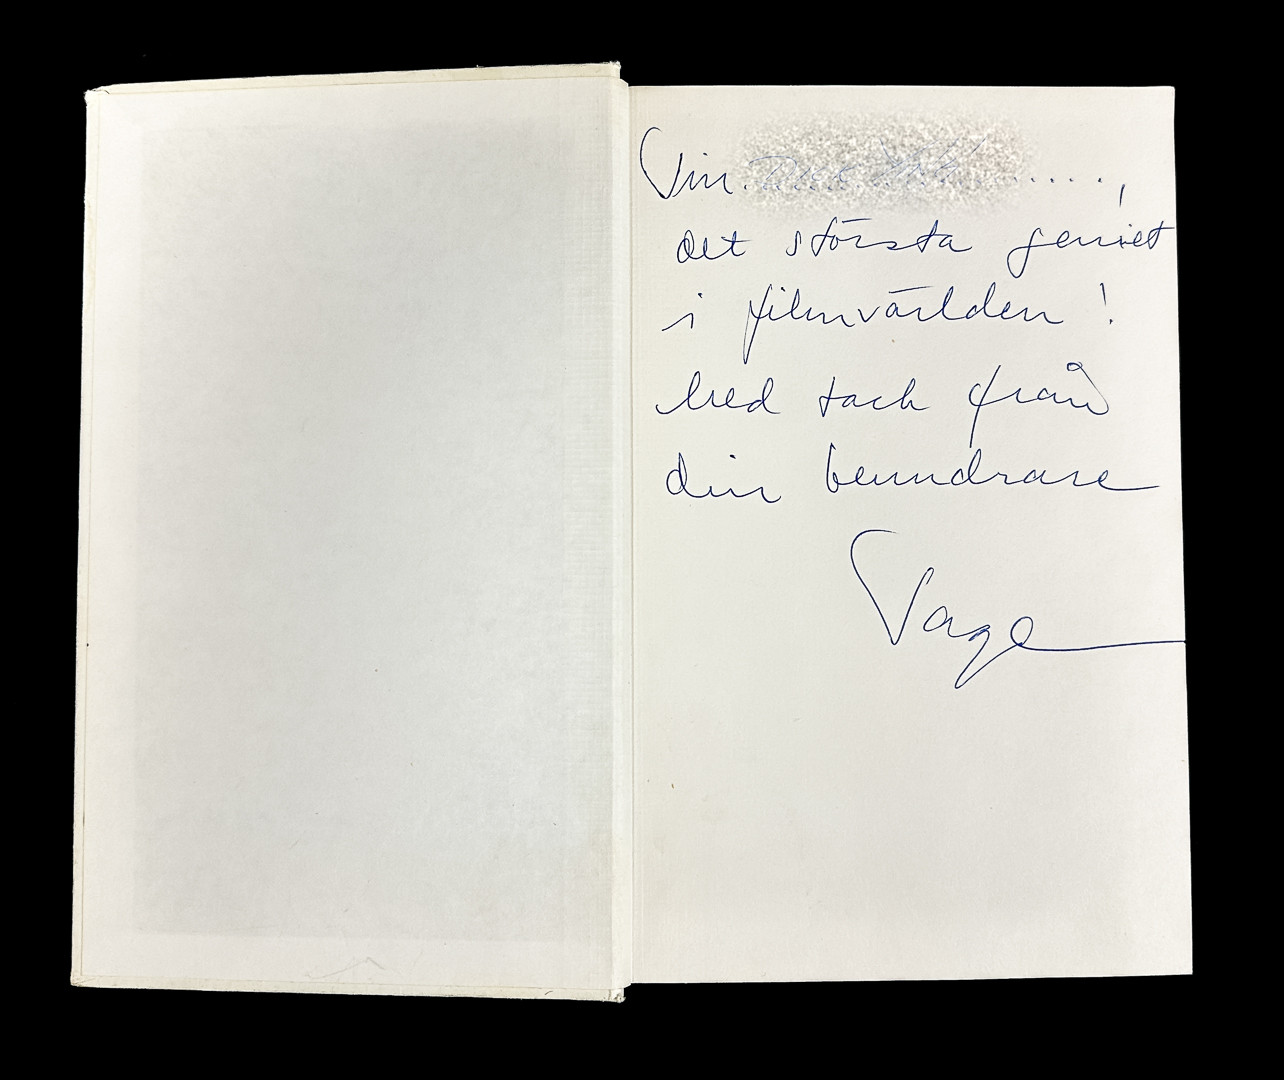 Till .........,
det största geniet
i filmvärlden!
Med tack från
din beundrare
Tage